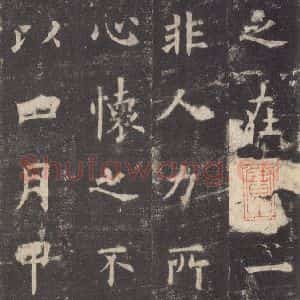 之在一
非人力所
心懷之不
以月甲
Shufawang